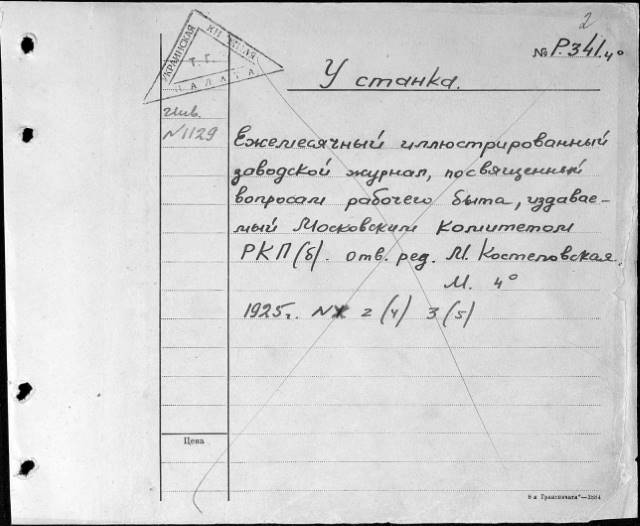 2
№ Р.341.4°
УКРАИНСКАЯ
КНИЖНАЯ
ПАЛАТА
Т. Г.
У станка.
Инв.
N1129
Ежемесячный иллюстрированный
заводской журнал, посвященный
вопросам рабочего быта, издавае-
мый Московским Комитетом
РКП(б). отв. ред. М. Костеловская.
М. 4°
1925г. NN 2 (4) 3 (5)
Цена
8-я Транспечать"—2884